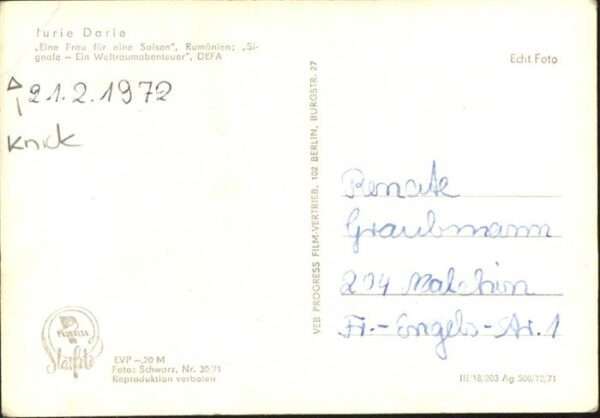 Iurie Darie
„Eine Frau für eine Saison", Rumänien; „Si-
gnale – Ein Weltraumabenteuer", DEFA
21.2.1972
Knick
Echt Foto
VEB PROGRESS FILM-VERTRIEB, 102 BERLIN, BURGSTR. 27
Renate
Graubmann
204 Malchin
Fr.-Engels-Str. 1
PROGRESS
Starfoto
EVP –,20 M
Foto: Schwarz, Nr. 30/71
Reproduktion verboten
III/18/203 Ag 500/12/71